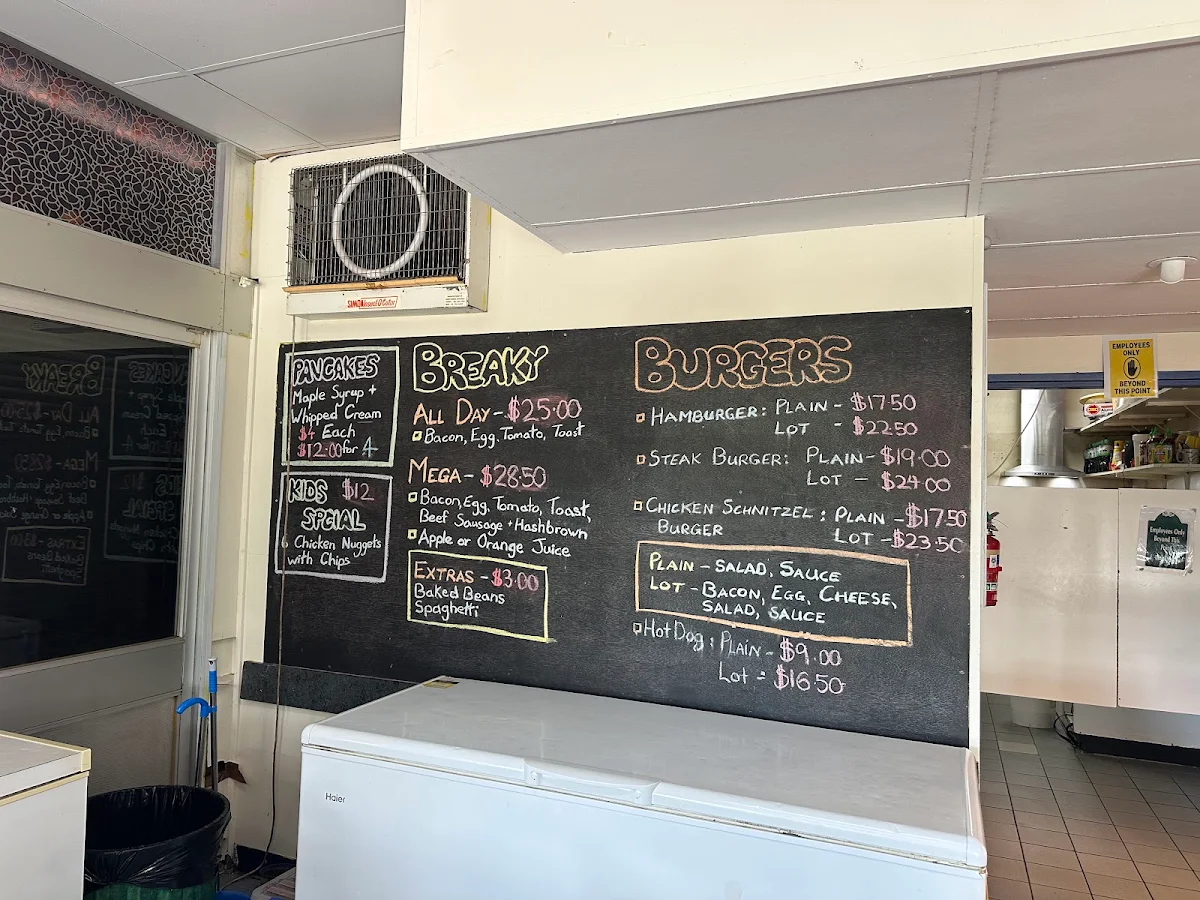 PANCAKES
Maple Syrup +
Whipped Cream
$4 Each
$12.00 for 4
KIDS $12
SPCIAL
6 Chicken Nuggets
with Chips
BREAKY
ALL DAY - $25.00
Bacon, Egg, Tomato, Toast
MEGA - $28.50
Bacon, Egg, Tomato, Toast,
Beef Sausage + Hashbrown
Apple or Orange Juice
EXTRAS - $3.00
Baked Beans
Spaghetti
BURGERS
HAMBURGER: PLAIN - $17.50
LOT - $22.50
STEAK BURGER: PLAIN - $19.00
LOT - $24.00
CHICKEN SCHNITZEL: PLAIN - $17.50
BURGER LOT - $23.50
PLAIN - SALAD, SAUCE
LOT - BACON, EGG, CHEESE,
SALAD, SAUCE
Hot Dog: PLAIN - $9.00
Lot - $16.50
EMPLOYEES
ONLY
BEYOND
THIS POINT
Employees Only
Beyond This
Haier